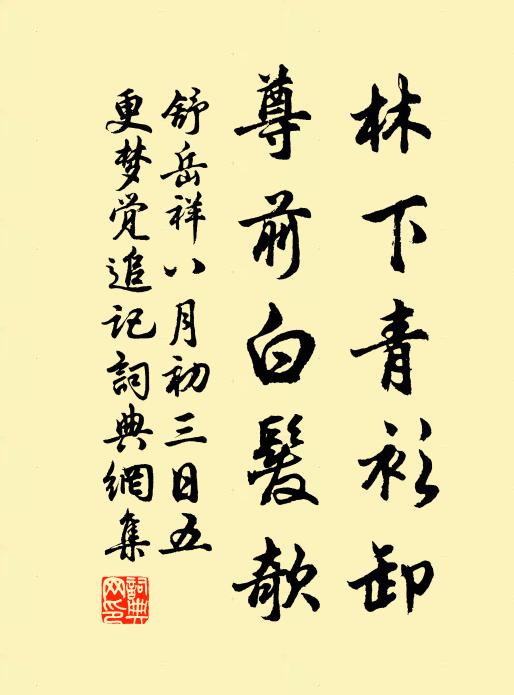 林下青衫卸
尊前白髮欹
舒岳祥八月初三日五
更梦觉追记詞典網集
詞典
网印